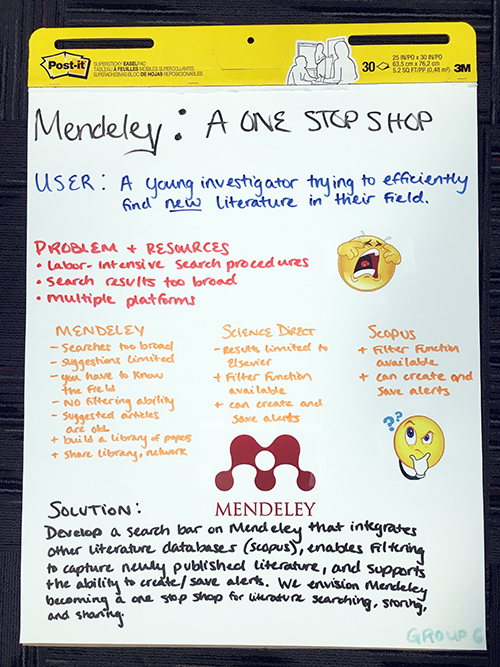 Post-it
SUPERSTICKY EASELPAD
TABLEAU À FEUILLES MOBILES SUPERCOLLANTES
SUPERADHESIVAS BLOC DE HOJAS REPOSICIONABLES
30
25 IN/PO x 30 IN/PO
63,5 cm x 76,2 cm
5.2 SQ FT/PP (0,48 m²)
3M
Mendeley: A ONE STOP SHOP
USER: A young investigator trying to efficiently
find new literature in their field.
PROBLEM + RESOURCES
• Labor-intensive search procedures
• Search results too broad
• multiple platforms
MENDELEY
- Searches too broad
- suggestions limited
- you have to know
the field
- NO filtering ability
- suggested articles
are old
+ build a library of papers
+ share library, network
SCIENCE DIRECT
- Results limited to
Elsevier
+ Filter function
available
+ can create and
save alerts
SCOPUS
+ Filter Function
available
+ can create and
save alerts
??
MENDELEY
SOLUTION:
Develop a search bar on Mendeley that integrates
other literature databases (scopus), enables filtering
to capture newly published literature, and supports
the ability to create/save alerts. We envision Mendeley
becoming a one stop shop for literature searching, storing,
and sharing.
GROUP 6